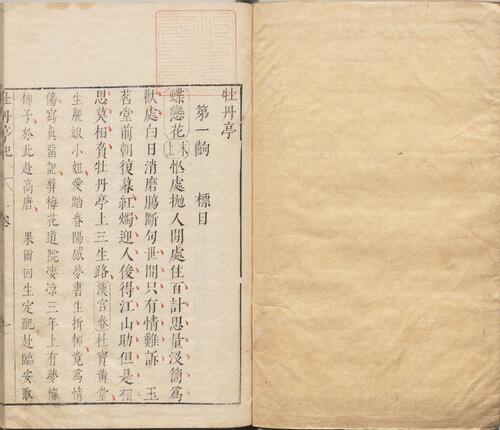 牡丹亭
第一齣 標目
蝶戀花末上忙處拋人閒處住百計思量沒箇為
歡處白日消磨腸斷句世間只有情難訴 玉
茗堂前朝復暮紅燭迎人俊得江山助但是相
思莫相負牡丹亭上三生路漢宮春杜寶黃堂
生麗娘小姐愛踏春陽感夢書生折柳竟為情
傷寫真留記葬梅花道院淒涼三年上有夢梅
柳子於此赴高唐 果爾回生定配赴臨安取
牡丹亭記 卷一 一